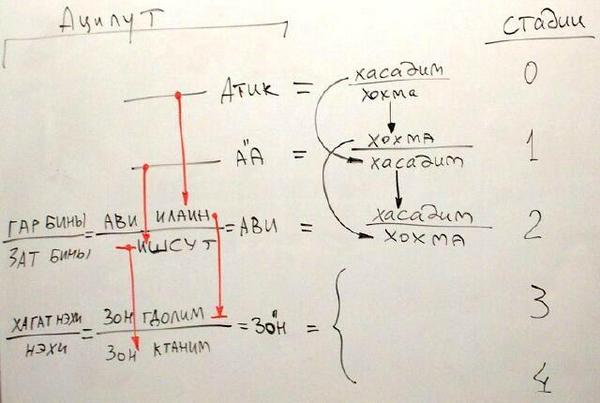 Ацилут
стадии
Атик = хасадим / хохма 0
А"А = хохма / хасадим 1
ГАР БИНЫ / ЗАТ БИНЫ = АВИ ИЛАИН / ИШСУТ = АВИ = хасадим / хохма 2
ХАГАТ НЭХИ / НЭХИ = ЗОН ГДОЛИМ / ЗОН КТАНИМ = ЗО"Н = { 3
4